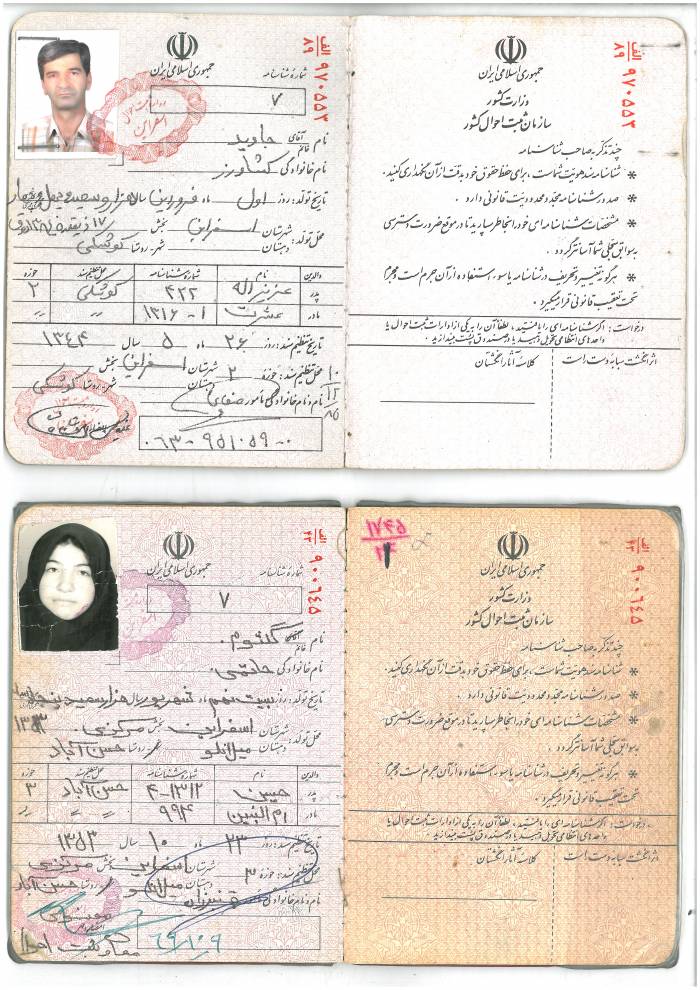 جمهوری اسلامی ایران
شماره شناسنامه
۷
نام آقای خانم جاوید
نام خانوادگی کشاورز
تاریخ تولد: روز اول ماه فروردین سال هزار و سیصد و چهل و چهار
محل تولد: شهرستان اسفراین بخش
دهستان شهر - روستا کوشکی
والدین نام شماره شناسنامه محل تنظیم سند حوزه
پدر عزیزاله ۴۲۲ کوشکی ۲
مادر عشرت ۱ - ۱۳۱۶ // //
تاریخ تنظیم سند: روز ۲۶ ماه ۵ سال ۱۳۴۴
محل تنظیم سند: حوزه ۲ شهرستان اسفراین بخش
دهستان شهر - روستا کوشکی
نام و نام خانوادگی مامور صفایی
۰۶۳ - ۹۵۱۰۵۹ - ۰
الف ۸۹ ۹۷۰۵۵۳
جمهوری اسلامی ایران
وزارت کشور
سازمان ثبت احوال کشور
چند تذکر به صاحب شناسنامه
* شناسنامه سند هویت شماست، برای حفظ حقوق خود به دقت از آن نگهداری کنید.
* صدور شناسنامه مجدد محدودیت قانونی دارد.
* مشخصات شناسنامه‌ای خود را بخاطر بسپارید تا در موقع ضرورت دسترسی
به سوابق سجلی شما آسانتر گردد.
* هرگونه تغییر و تحریف در شناسنامه یا سوء استفاده از آن جرم است و مجرم
تحت تعقیب قانونی قرار میگیرد.
درخواست: اگر شناسنامه‌ای را یافتید، لطفاً آن را به یکی از ادارات ثبت احوال یا
واحدهای انتظامی تحویل دهید یا در صندوق پست بیندازید.
اثر انگشت سبابه دست است
کلاسه آثار انگشتان
الف ۸۹ ۹۷۰۵۵۳
جمهوری اسلامی ایران
شماره شناسنامه
۷
نام آقای خانم کلثوم
نام خانوادگی حاتمی
تاریخ تولد: روز بیست نهم ماه شهریور سال هزار سیصد پنجاه
۱۳۵۳
محل تولد: شهرستان اسفراین بخش مرکزی
دهستان میلانلو شهر - روستا حسن آباد
والدین نام شماره شناسنامه محل تنظیم سند حوزه
پدر حسن ۴-۱۳۱۲ حسن آباد ۳
مادر ام البنین ۹۹۴ // //
تاریخ تنظیم سند: روز ۲۳ ماه ۱۰ سال ۱۳۵۳
محل تنظیم سند: حوزه ۳ شهرستان اسفراین بخش مرکزی
دهستان میلانلو شهر - روستا حسن آباد
نام و نام خانوادگی
۶۹/۱۰/۹
الف ۴۳ ۹۰۰۶۴۵
جمهوری اسلامی ایران
وزارت کشور
سازمان ثبت احوال کشور
چند تذکر به صاحب شناسنامه
* شناسنامه سند هویت شماست، برای حفظ حقوق خود به دقت از آن نگهداری کنید.
* صدور شناسنامه مجدد محدودیت قانونی دارد.
* مشخصات شناسنامه‌ای خود را بخاطر بسپارید تا در موقع ضرورت دسترسی
به سوابق سجلی شما آسانتر گردد.
* هرگونه تغییر و تحریف در شناسنامه یا سوء استفاده از آن جرم است و مجرم
تحت تعقیب قانونی قرار میگیرد.
درخواست: اگر شناسنامه‌ای را یافتید، لطفاً آن را به یکی از ادارات ثبت احوال یا
واحدهای انتظامی تحویل دهید یا در صندوق پست بیندازید.
اثر انگشت سبابه دست است
کلاسه آثار انگشتان
الف ۴۳ ۹۰۰۶۴۵